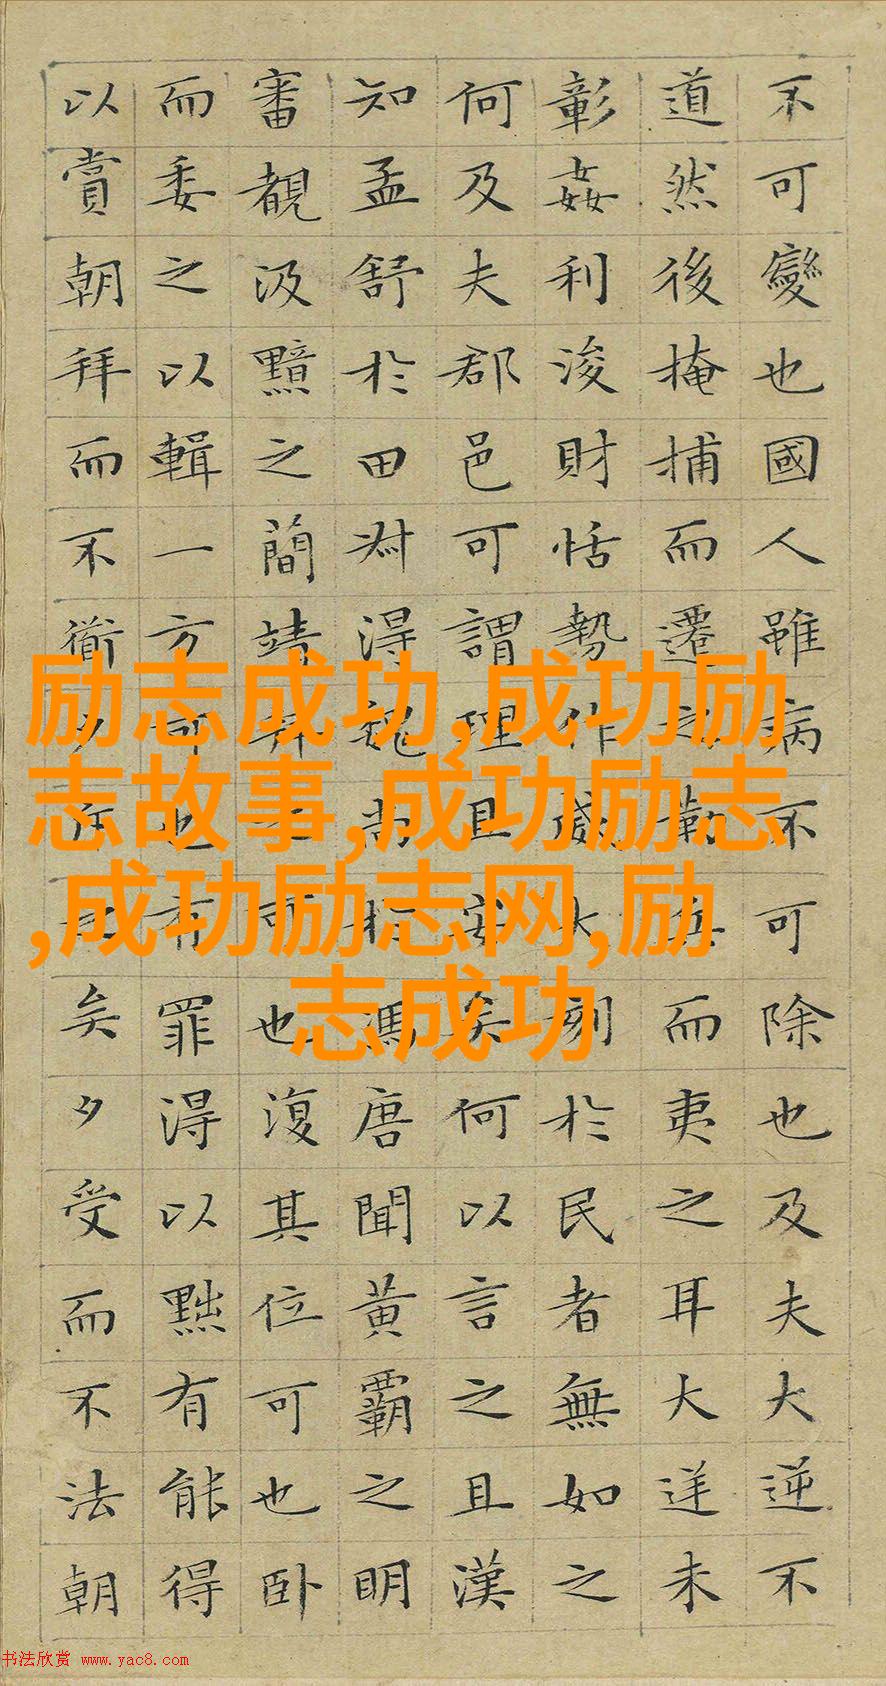 不可變也國人雖病不可除也及夫大逆不
道然後掩捕而遷之勒兵而夷之耳大逆未
彰姦利浚財恬勢作威大刻於民者無如之
何及夫郡邑可謂理且安矣何以言之且漢
知孟舒於田叔得魏尚於馮唐聞黃霸之明
審覩汲黯之簡靖拜之可也復其位可也卧
而委之以輯一方可也有罪得以黜有能得
以賞朝拜而不衜夕斥之矣夕受而不法朝
励志成功,成功励
志故事,成功励志
,成功励志网,励
志成功
书法欣赏 www.yac8.com